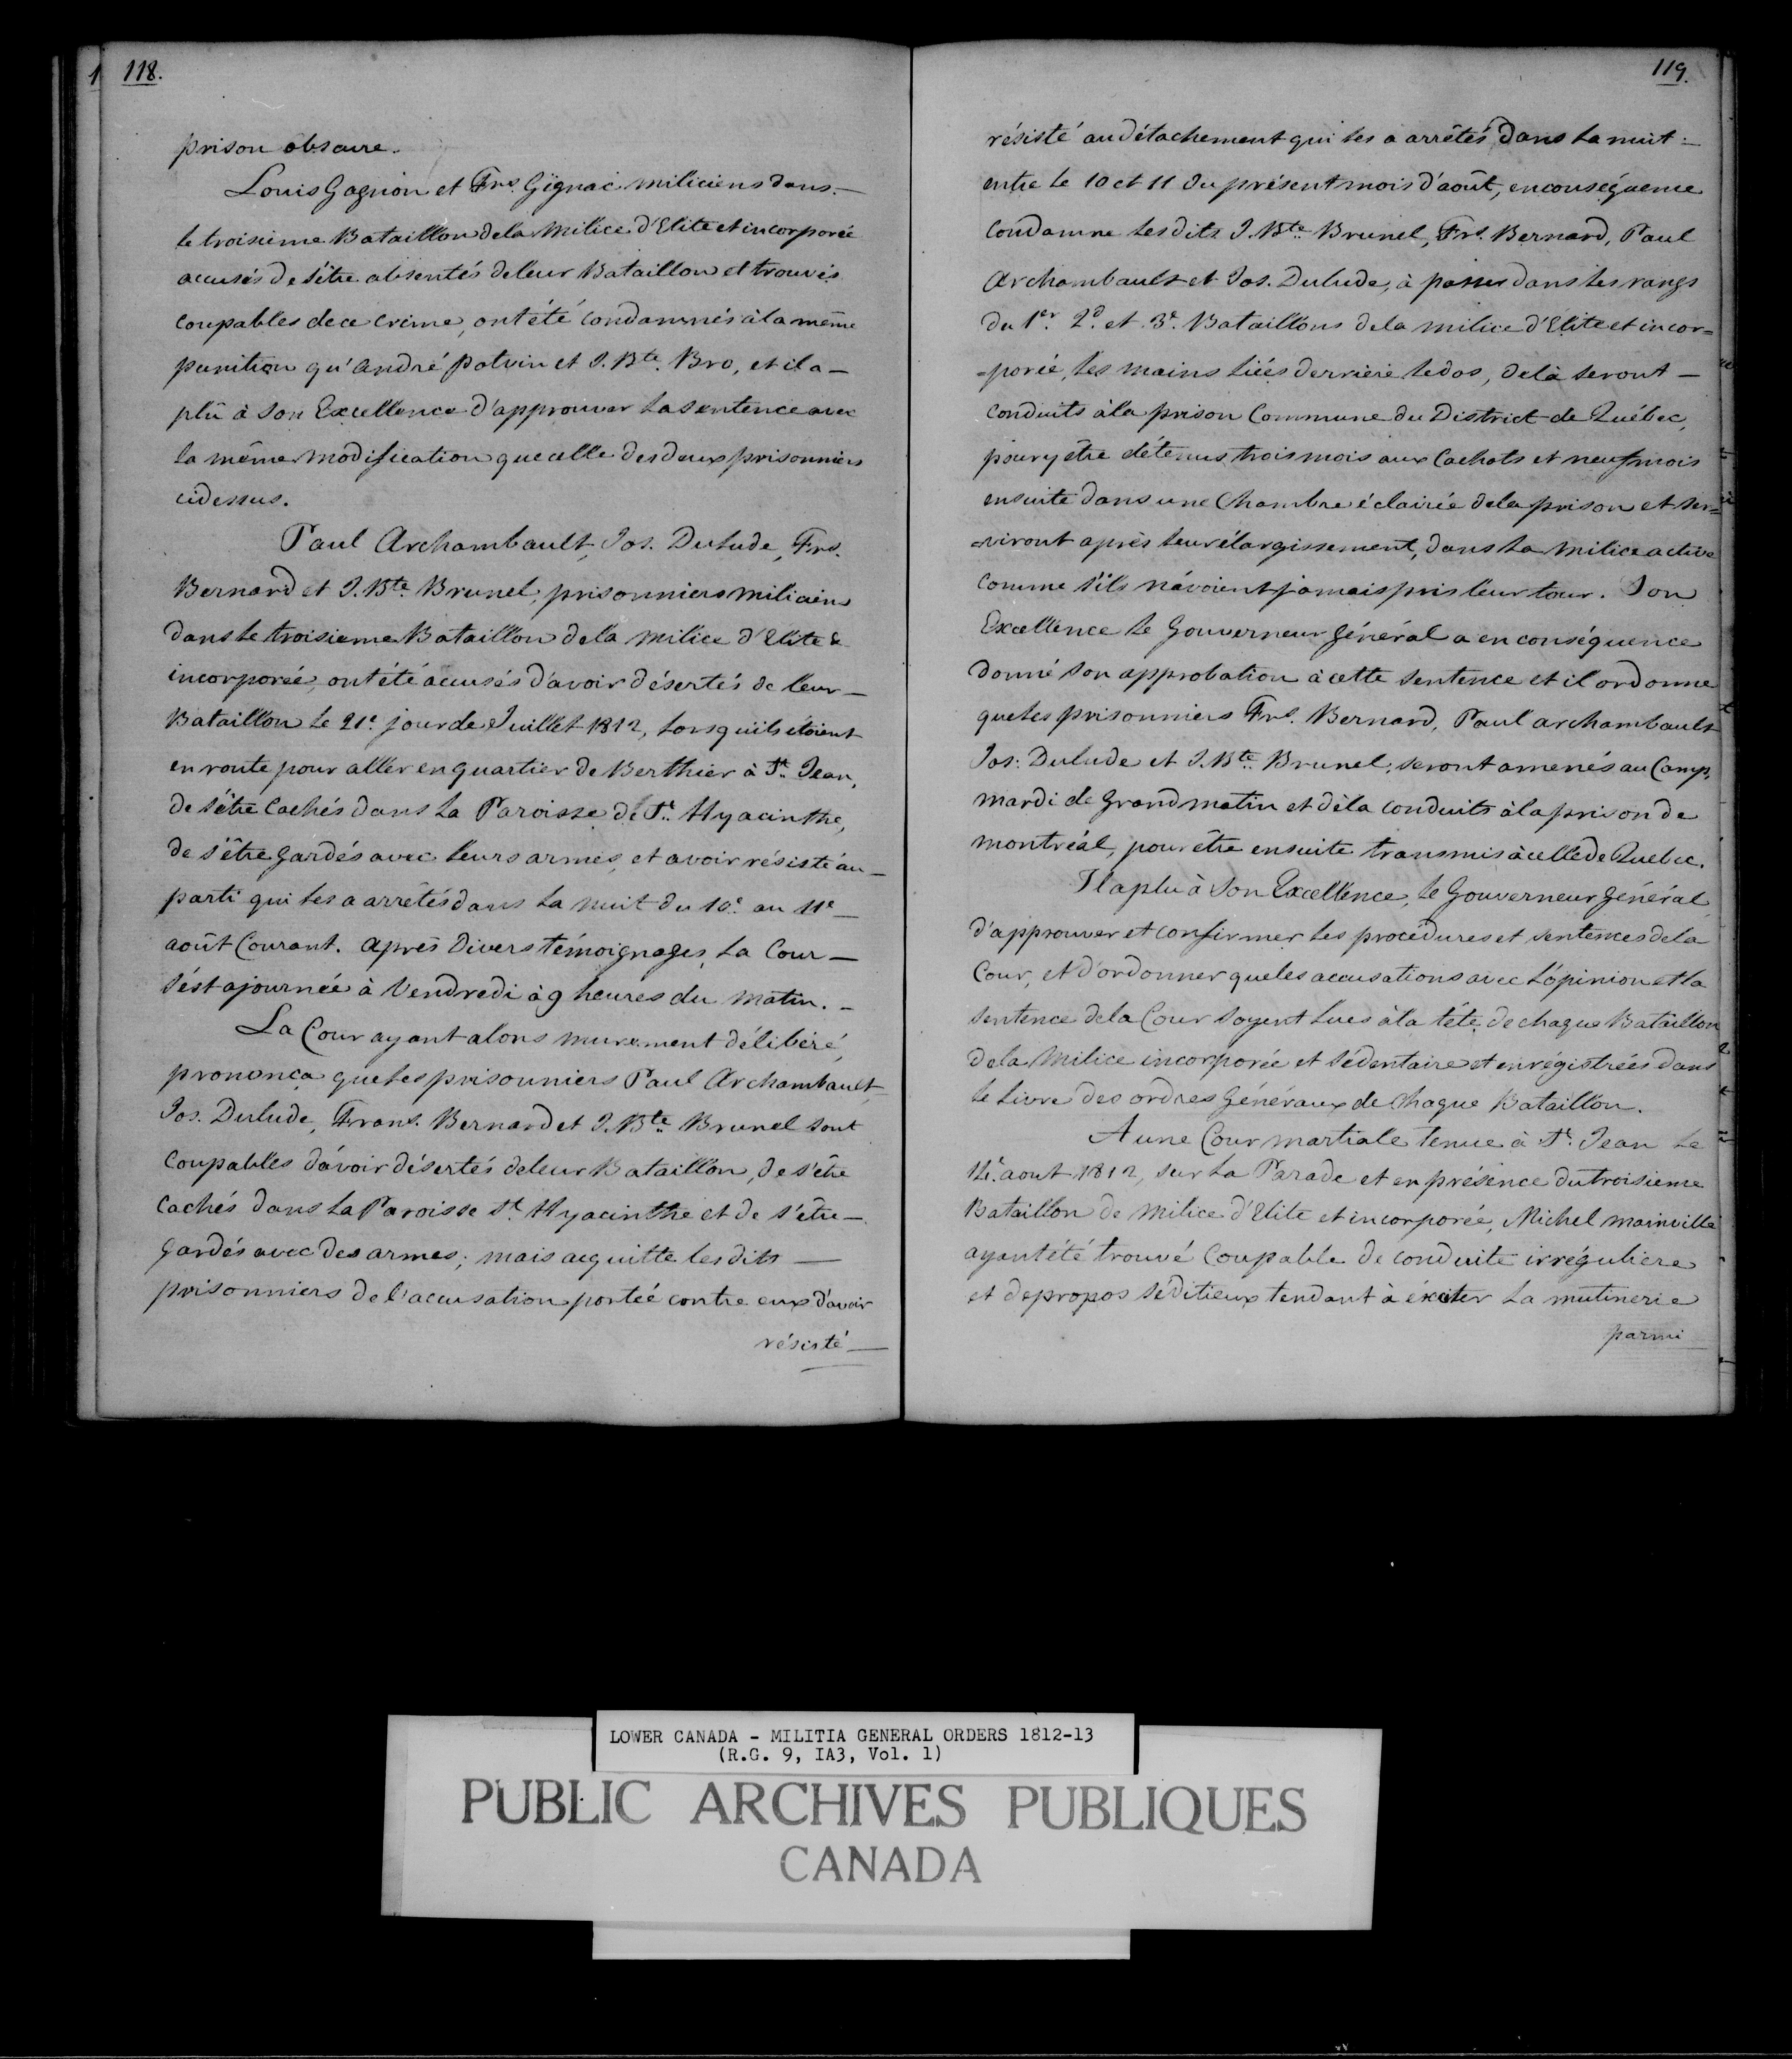 118.
prison obscure.
Louis Gagnon et Frs. Gignac miliciens dans
le troisieme Bataillon de la Milice d'Elite et incorporée
accusés de s'être absentés de leur Bataillon et trouvés
coupables de ce crime, ont été condamnés à la même
punition qu'andré potvin et J. Bte. Bro, et il a
plû à Son Excellence d'approuver la sentence avec
la même modification que celle des deux prisonniers
cidessus.
Paul Archambault, Jos. Dulude, Frs.
Bernard et J. Bte. Brunel, prisonniers miliciens
dans le troisieme Bataillon de la milice d'Elite &
incorporée, ont été accusés d'avoir désertés de leur
Bataillon le 21e. jour de Juillet 1812, lorsqu'ils étoient
en route pour aller en quartier de Berthier à St. Jean,
de s'être cachés dans la Paroisse de St. Hyacinthe,
de s'être gardés avec leurs armes, et avoir résisté au
parti qui les a arrêtés dans la nuit du 10e. au 11e
août Courant. après Divers témoignages, la Cour
s'ést ajournée à Vendredi à 9 heures du matin.
La Cour ayant alors murement délibéré,
prononça que les prisonniers Paul Archambault,
Jos. Dulude, Frans. Bernard et J. Bte. Brunel sont
Coupables d'avoir désertés de leur Bataillon, de s'être
Cachés dans la Paroisse St. Hyacinthe et de s'être
Gardés avec des armes; mais acquitte les dits
prisonniers de l'accusation portée contre eux d'avoir
résisté
119.
résisté au détachement qui les a arrêtés dans la nuit
entre le 10 et 11 du présent mois d'août, en conséquence
Condamne les dits J. Bte. Brunel, Frs. Bernard, Paul
Archambault et Jos. Dulude, à passer dans les rangs
du 1er. 2d. et 3e. Bataillons de la milice d'Elite et incor=
=porée, les mains liées derriere le dos, delà seront
conduits à la prison Commune du District de Québec,
pour y être détenus trois mois aux Cachots et neuf mois
ensuite dans une Chambre éclairée de la prison et ser=
=viront après leur élargissement, dans la milice active
comme s'ils n'avoient jamais pris leur tour. Son
Excellence le Gouverneur Général a en conséquence
donné son approbation à cette sentence et il ordonne
que les prisonniers Frs. Bernard, Paul archambault
Jos: Dulude et J. Bte. Brunel, seront amenés au Camp,
mardi de grand matin et delà conduits à la prison de
montréal, pour être ensuite transmis à celle de Quebec.
Il a plu à Son Excellence, le Gouverneur Général,
d'approuver et confirmer les procédures et sentences de la
Cour, et d'ordonner que les accusations avec l'opinion et la
sentence de la Cour soyent lues à la tête de chaque Bataillon
de la Milice incorporée et sédentaire et enrégistrées dans
le Livre des ordres Généraux de Chaque Bataillon.
A une Cour martiale tenue à St. Jean le
12e. aout 1812, sur la Parade et en présence du troisieme
Bataillon de Milice d'Elite et incorporée, Michel mainville
ayant été trouvé Coupable de conduite irréguliere
et de propos séditieux tendant à exciter la mutinerie
parmi
LOWER CANADA - MILITIA GENERAL ORDERS 1812-13
(R.G. 9, IA3, Vol. 1)
PUBLIC ARCHIVES PUBLIQUES
CANADA